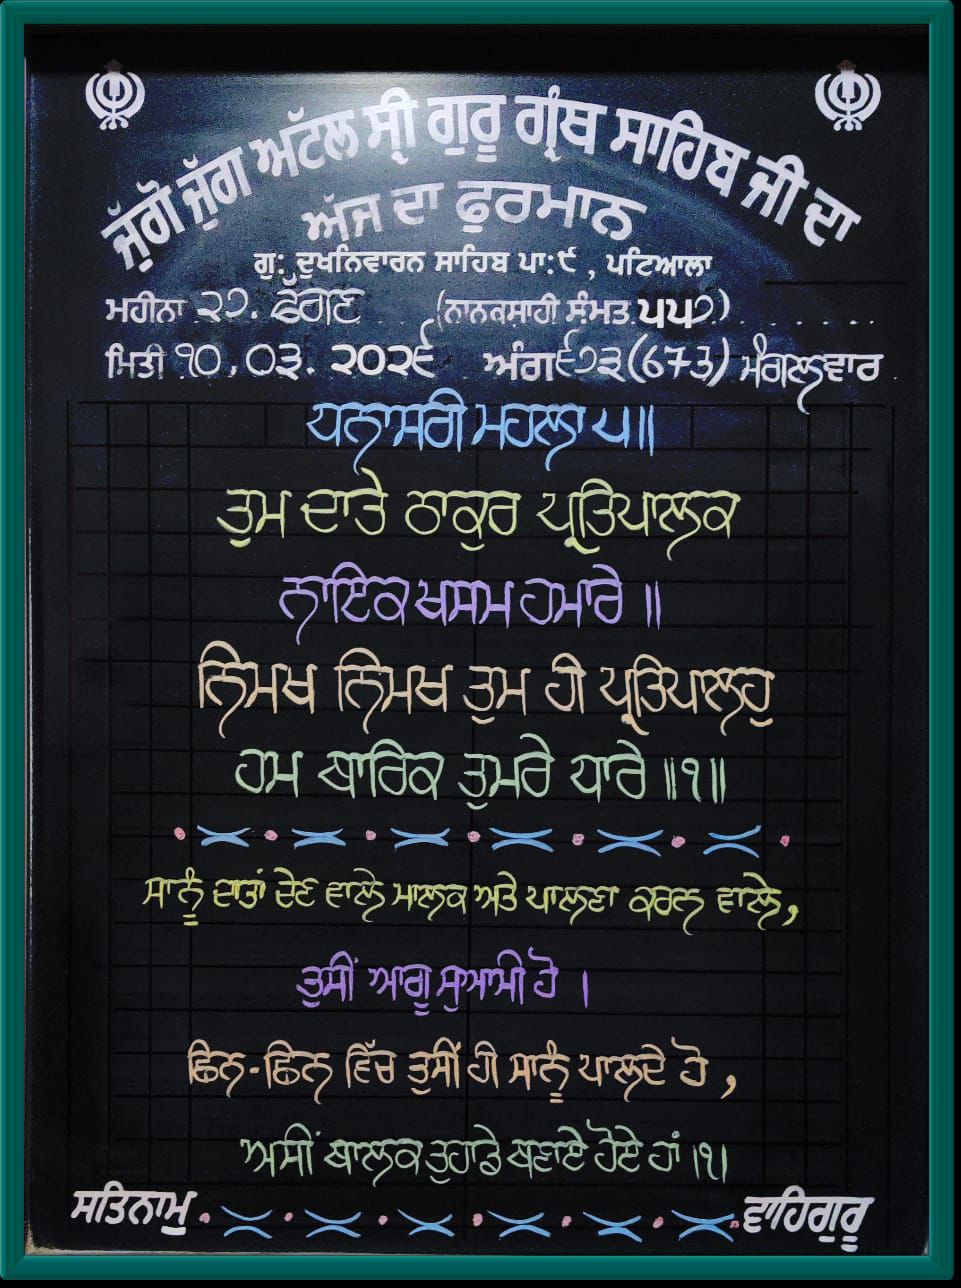 ਜੁੱਗੋ ਜੁੱਗ ਅੱਟਲ ਸ੍ਰੀ ਗੁਰੂ ਗ੍ਰੰਥ ਸਾਹਿਬ ਜੀ ਦਾ
ਅੱਜ ਦਾ ਫੁਰਮਾਨ
ਗੁ: ਦੁਖਨਿਵਾਰਨ ਸਾਹਿਬ ਪਾ:੯ , ਪਟਿਆਲਾ
ਮਹੀਨਾ ੨੭. ਫੱਗਣ (ਨਾਨਕਸ਼ਾਹੀ ਸੰਮਤ ੫੫੭)
ਮਿਤੀ ੧੦.੦੩.੨੦੨੬ ਅੰਗ ੬੭੩ (673) ਮੰਗਲਵਾਰ
ਧਨਾਸਰੀ ਮਹਲਾ ੫॥
ਤੁਮ ਦਾਤੇ ਠਾਕੁਰ ਪ੍ਰਤਿਪਾਲਕ
ਨਾਇਕ ਖਸਮ ਹਮਾਰੇ ॥
ਨਿਮਖ ਨਿਮਖ ਤੁਮ ਹੀ ਪ੍ਰਤਿਪਾਲਹੁ
ਹਮ ਬਾਰਿਕ ਤੁਮਰੇ ਧਾਰੇ ॥੧॥
ਸਾਨੂੰ ਦਾਤਾਂ ਦੇਣ ਵਾਲੇ ਮਾਲਕ ਅਤੇ ਪਾਲਣਾ ਕਰਨ ਵਾਲੇ,
ਤੁਸੀਂ ਆਗੂ ਸੁਆਮੀ ਹੋ ।
ਛਿਨ-ਛਿਨ ਵਿੱਚ ਤੁਸੀਂ ਹੀ ਸਾਨੂੰ ਪਾਲਦੇ ਹੋ ,
ਅਸੀਂ ਬਾਲਕ ਤੁਹਾਡੇ ਬਣਾਏ ਹੋਏ ਹਾਂ ।੧।
ਸਤਿਨਾਮੁ ਵਾਹਿਗੁਰੂ